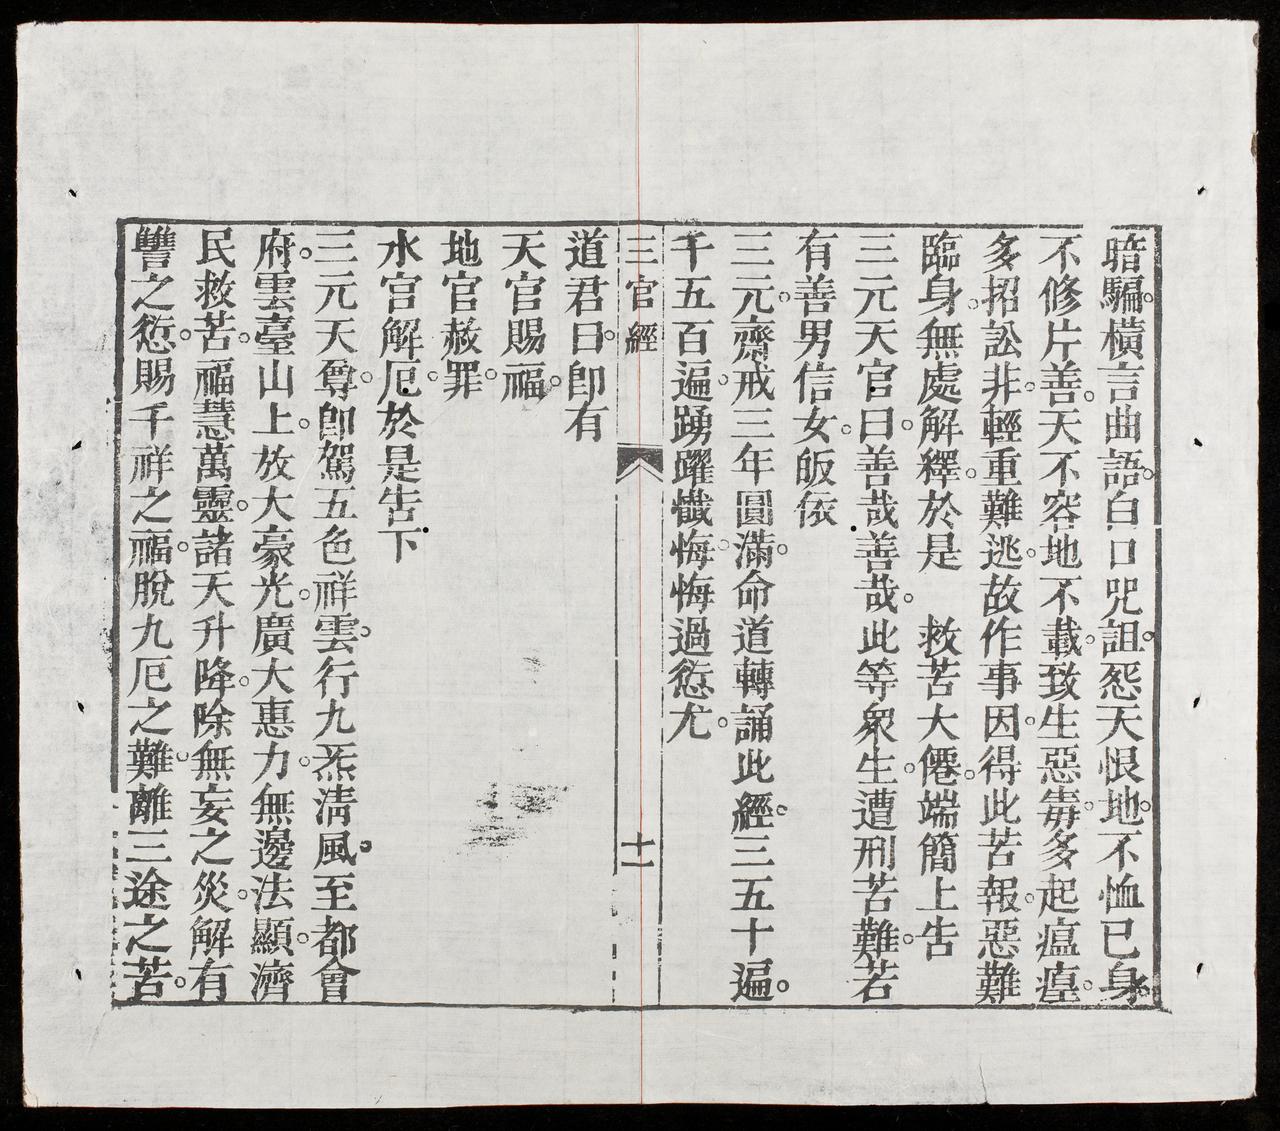 暗騙橫言曲語白口咒詛怨天恨地不恤已身
不修片善天不容地不載致生惡毒多起瘟𤺋
多招訟非輕重難逃故作事因得此苦報惡難
臨身無處解釋於是　救苦大僊端簡上告
三元天官曰善哉善哉此等衆生遭刑苦難若
有善男信女皈依
三元齋戒三年圓滿命道轉誦此經三五十遍
千五百遍踴躍懺悔悔過愆尤
三官經
十一
道君曰卽有
天官賜福
地官赦罪
水官解厄於是告下
三元天尊卽駕五色祥雲行九炁清風至都會
府雲臺山上放大豪光廣大惠力無邊法顯濟
民救苦福慧萬靈諸天升降除無妄之災解有
讐之愆賜千祥之福脫九厄之難離三途之苦